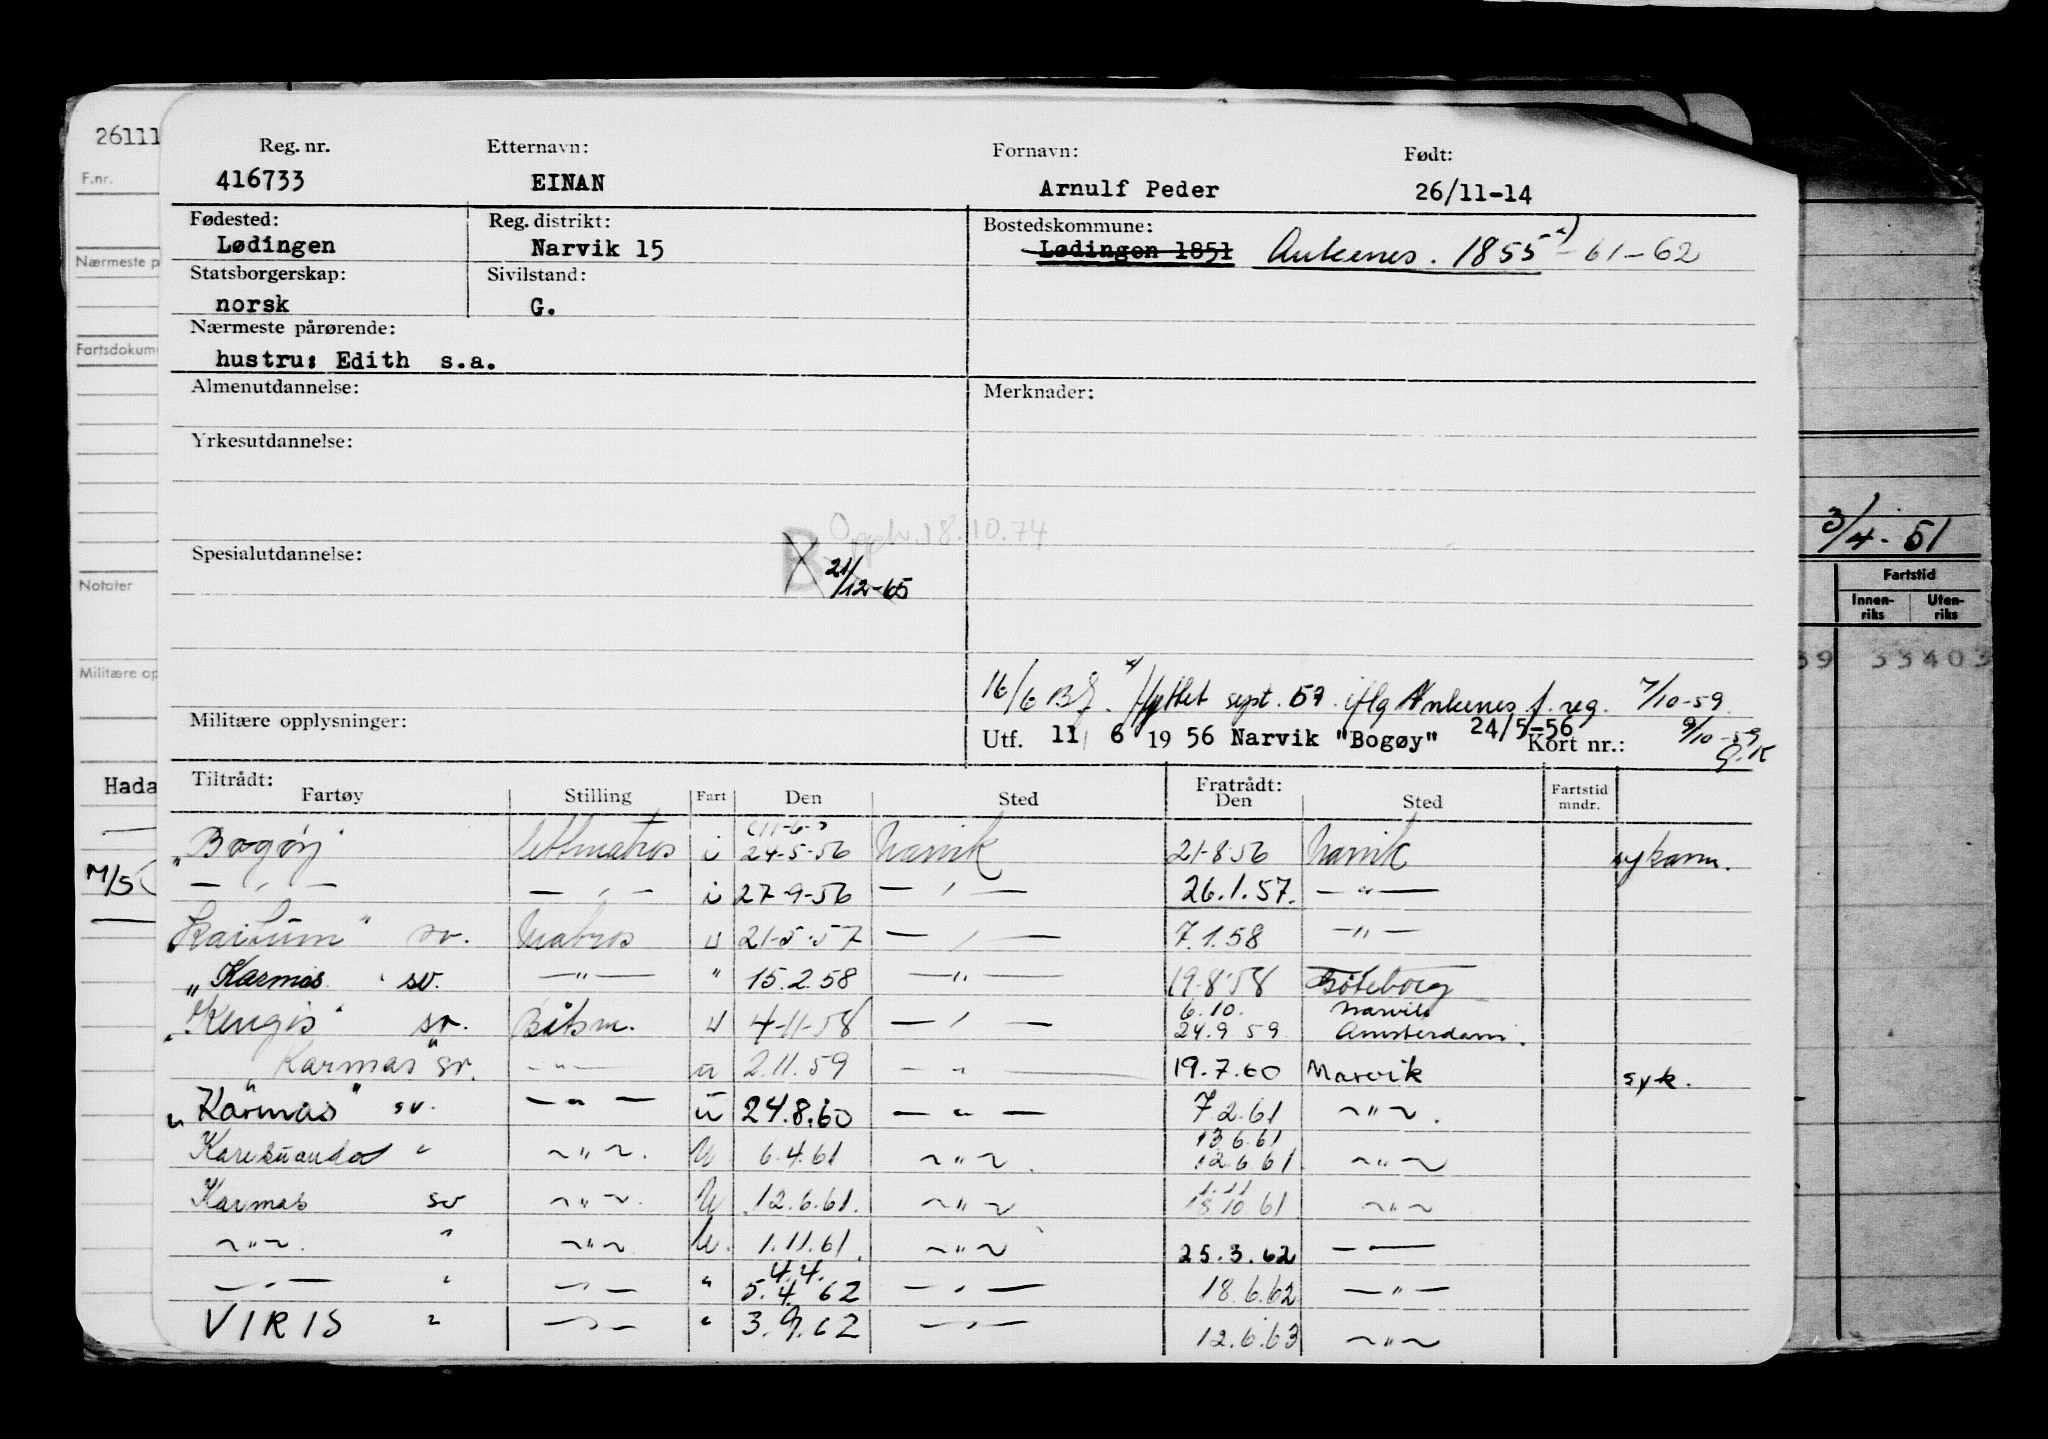 26111
F.nr.
Nærmeste p
Fartsdokum
Notater
Militære op
Hada
M/S
Reg. nr. Etternavn: Fornavn: Født:
416733 EINAN Arnulf Peder 26/11-14
Fødested: Reg. distrikt: Bostedskommune:
Lødingen Narvik 15 Lødingen 1851 Ankenes. 1855 x) -61-62
Statsborgerskap: Sivilstand:
norsk G.
Nærmeste pårørende:
hustru: Edith s.a.
Almenutdannelse: Merknader:
Yrkesutdannelse:
Opph. 18.10.74
Spesialutdannelse: B 21/12-65
16/6 x) flyttet sept. 59 iflg Ankenes f. reg. 7/10-59
Militære opplysninger:
Utf. 11/ 6 19 56 Narvik "Bogøy" 24/5-56 Kort nr.: 9/10-59
Tiltrådt: Fratrådt:
Fartøy Stilling Fart Den Sted Den Sted Fartstid mndr.
(11-6-)
"Bogøy" lettmatros i 24-5-56 Narvik 21-8-56 Narvik sykdom.
— " — — " — i 27-9-56 — " — 26.1.57. — " —
"Kaitum" sv. Matros u 21-5-57 — " — 7.1.58 — " —
"Karmas" sv. — " — " 15.2.58 — " — 19-8-58 Göteborg
6.10. Narvik
"Kengis" sv. Båtsm. u 4-11-58 — " — 24.9.59 Amsterdam.
Karmas" sv. — " — u 2.11.59 — " — 19.7.60 Narvik syk.
"Karmas" sv. — " — u 24.8.60 — " — 7.2.61 — " —
13.6.61
Karesuando " — " — U 6.4.61 — " — 12.6.61 — " —
1.11
Karmas sv — " — U 12.6.61. — " — 18.10.61 — " —
— " — " — " — U. 1.11.61. — " — 25.3.62 — " —
4.4.
— " — " — " — " 5.4.62 — " — 18.6.62 — " —
VIRIS " — " — " 3.9.62 — " — 12.6.63 — " —
3/4-51
Fartstid
Innen-riks Uten-riks
39 33403